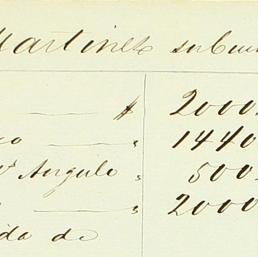 Martinez su Cu
——— # 2000
co ——— " 1440
Angulo " 500
——— " 2000
ida de